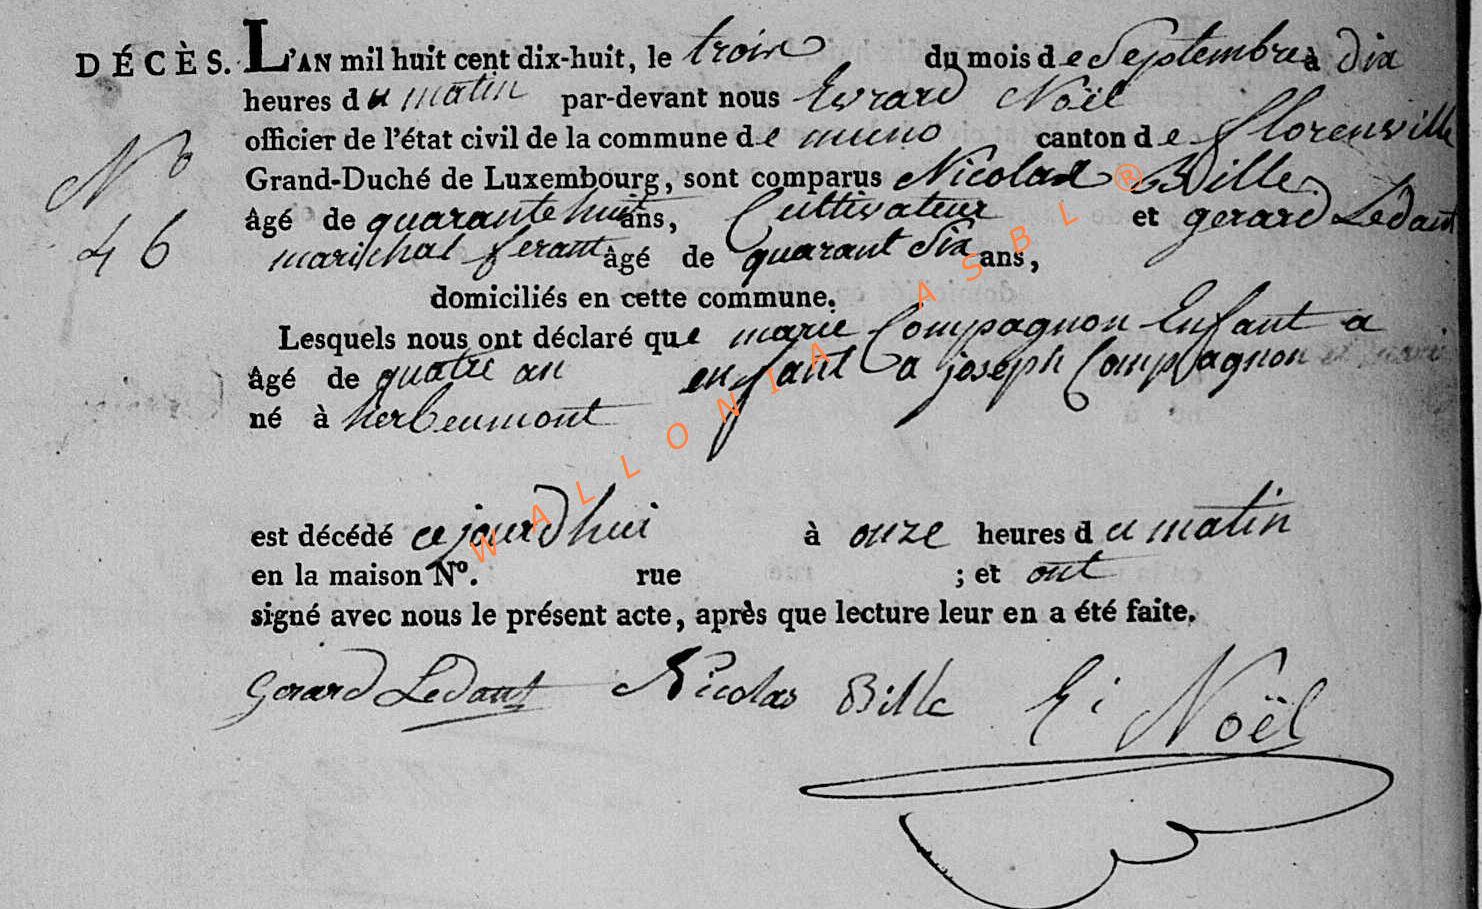 DÉCÈS. L'AN mil huit cent dix-huit, le trois du mois de Septembre à dix
heures du matin par-devant nous Evrard Noël
officier de l'état civil de la commune de muno canton de florenville
Grand-Duché de Luxembourg, sont comparus Nicolas Bille
No
46
âgé de quarante huit ans, Cultivateur et gerard Ledant
marichal ferant âgé de quarant Six ans,
domiciliés en cette commune.
Lesquels nous ont déclaré que marie Compagnon Enfant a
âgé de quatre an enfant a joseph Compagnon
né à herbeumont
est décédé cejourdhui à onze heures du matin
en la maison No. rue ; et ont
signé avec nous le présent acte, après que lecture leur en a été faite.
Gerard Ledant Nicolas Bille E: Noël
WALLONIA ASBL ®